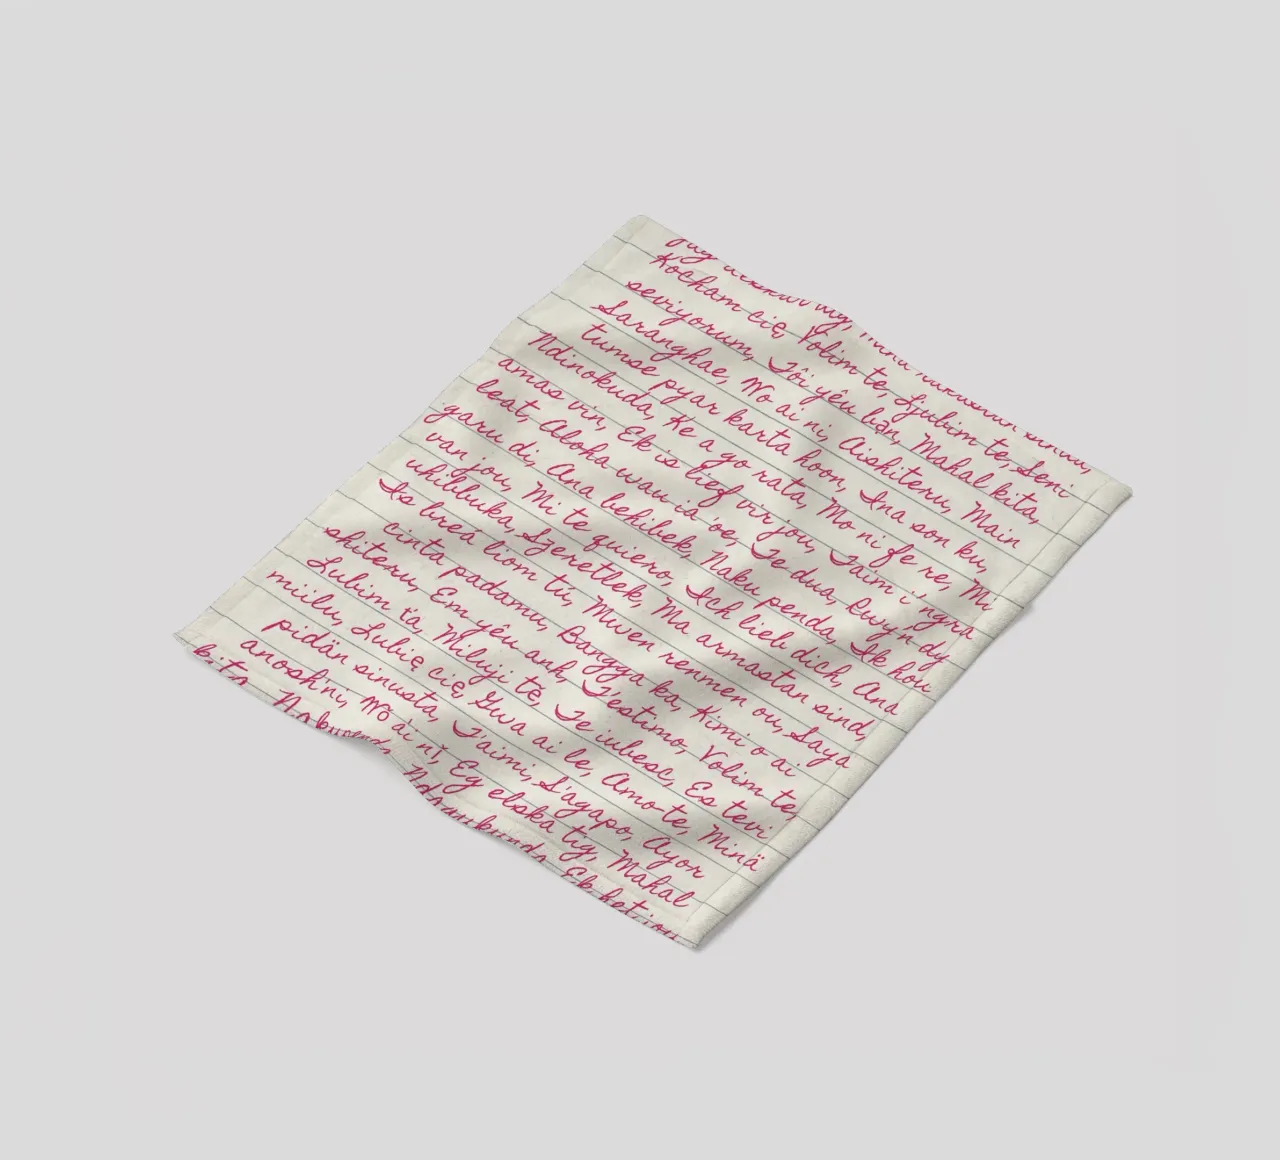 Kocham cię, Volim te, Ljubim te, Seni
seviyorum, Tôi yêu bạn, Mahal kita,
Saranghae, Wo ai ni, Aishiteru, Main
tumse pyar karta hoon, Ina son ku,
Ndinokuda, Ke a go rata, Mo ni fe re, Mi
amas vin, Ek is lief vir jou, Taim i ngra
leat, Aloha wau ia oe, Te dua, Rwy'n dy
garu di, Ana behibek, Naku penda, Ik hou
van jou, Mi te quiero, Ich lieb dich, Ana
uhibbuka, Szeretlek, Ma armastan sind,
Is breá liom tú, Mwen renmen ou, Saya
cinta padamu, Bangga ka, Kimi o ai
shiteru, Em yêu anh, Testimo, Volim te,
Lubim ťa, Miluji tě, Te iubesc, Es tevi
miilu, Lubię cię, Gwa ai le, Amo-te, Minä
pidän sinusta, T'aimi, S'agapo, Ayor
anosh'ni, Wo ai ni, Eg elska tig, Mahal
kita, Naku penda, Ndinokuda, Ek het jou